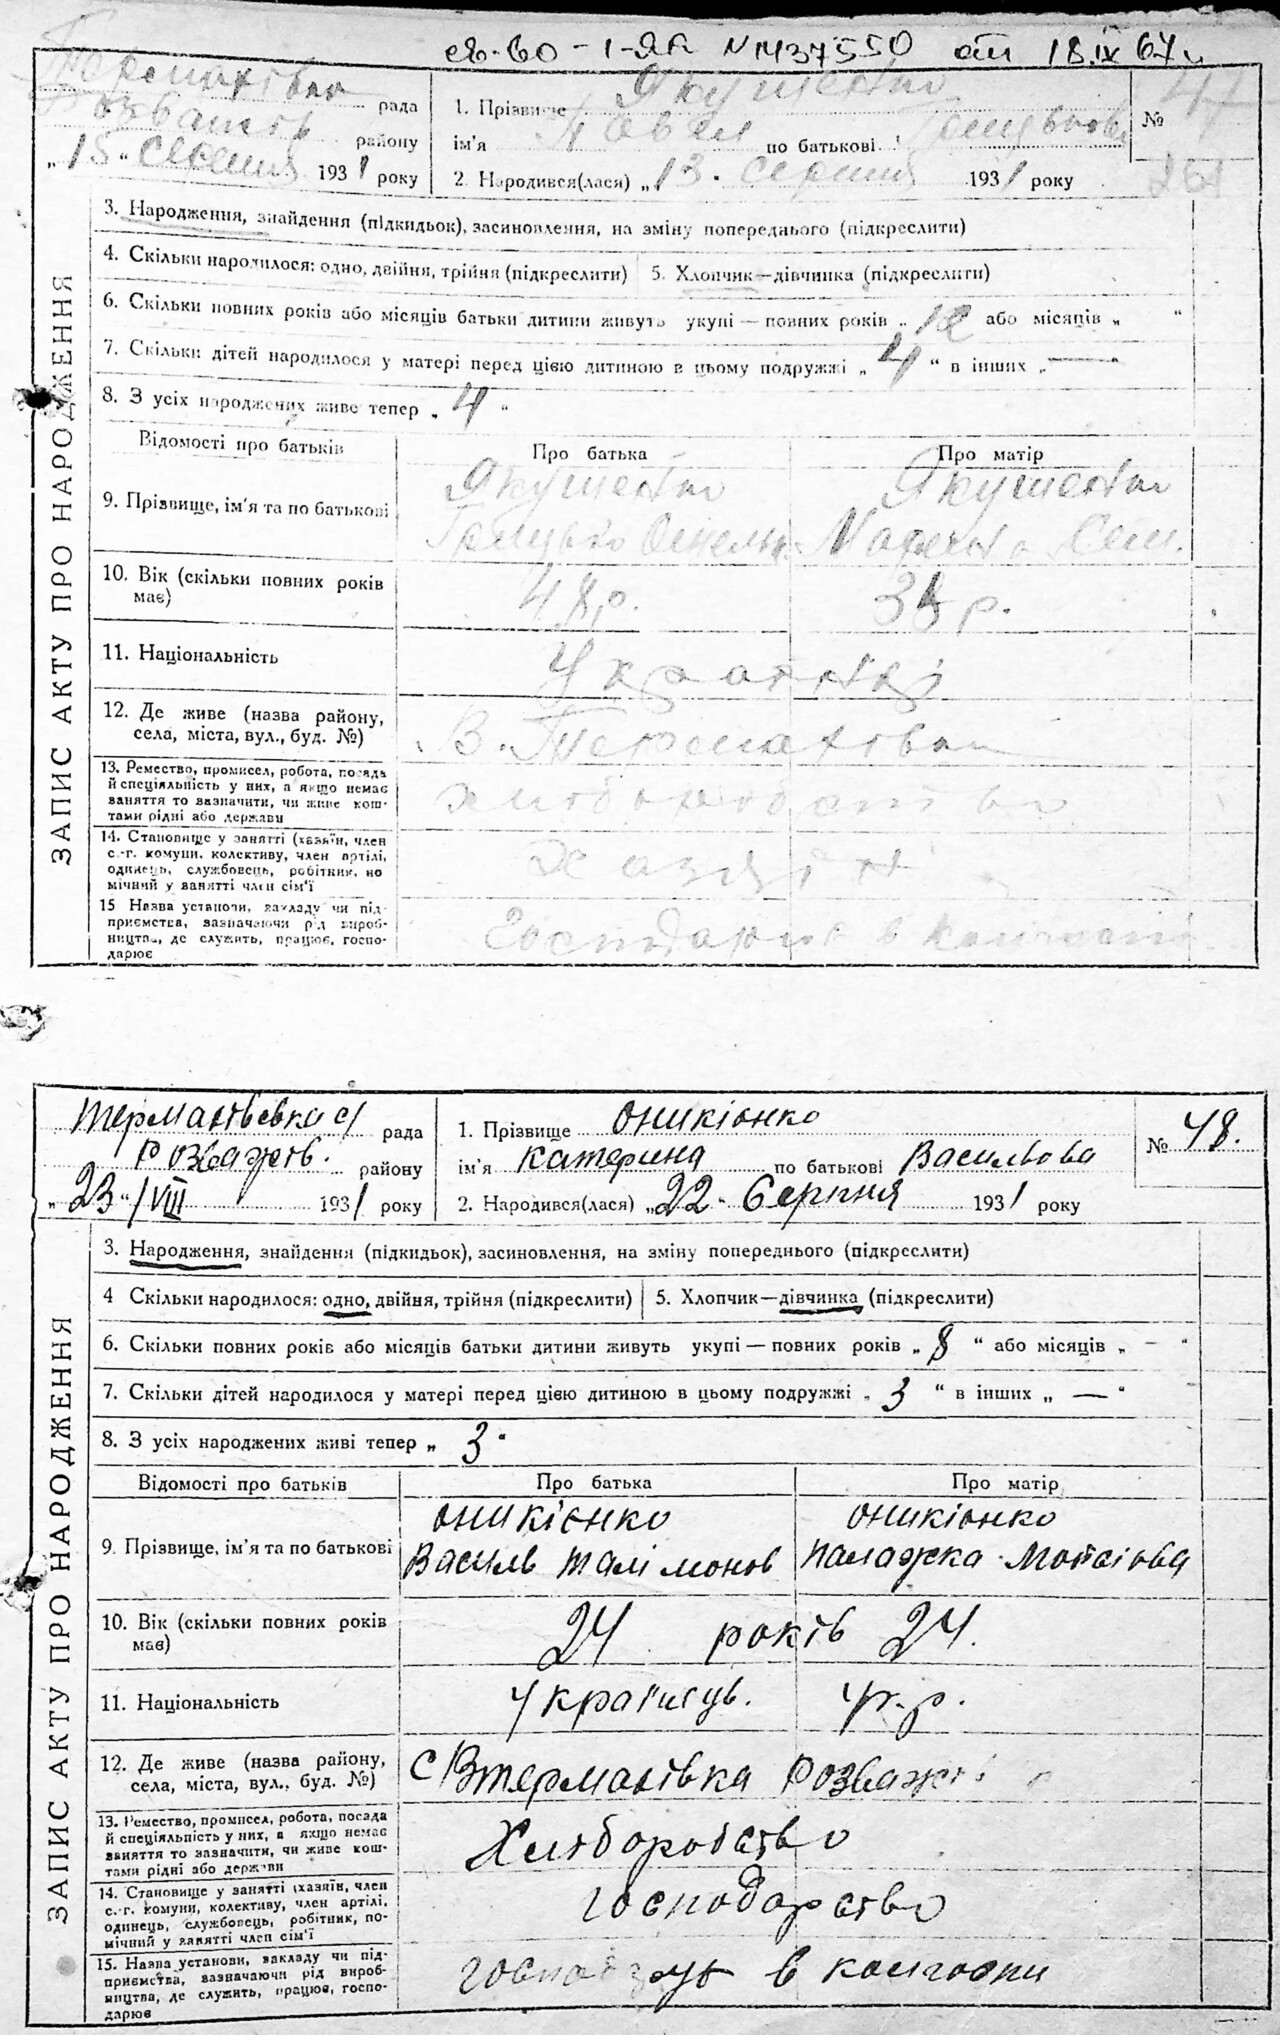 N 1437550 от 18.IX 67 г.
рада
району
„15“ серпня 1931 року
1. Прізвище Якушенко
ім'я Павел по батькові
2. Народився(лася) „13. серпня 1931 року
№ 47
261
ЗАПИС АКТУ ПРО НАРОДЖЕННЯ
3. Народження, знайдення (підкидьок), засиновлення, на зміну попереднього (підкреслити)
4. Скільки народилося: одно, двійня, трійня (підкреслити)
5. Хлопчик—дівчинка (підкреслити)
6. Скільки повних років або місяців батьки дитини живуть укупі — повних років „12 або місяців „ “
7. Скільки дітей народилося у матері перед цією дитиною в цьому подружжі „4“ в інших „—“
8. З усіх народжених живе тепер „4“
Відомості про батьків
Про батька
Про матір
9. Прізвище, ім'я та по батькові
Якушенко
Грицько Омельк.
Якушенко
Сем.
10. Вік (скільки повних років
має)
48 р.
р.
11. Національність
Українці
12. Де живе (назва району,
села, міста, вул., буд. №)
В. Термахівка
13. Ремество, промисел, робота, посада
й спеціяльність у них, а якщо немає
заняття то зазначити, чи живе кош-
тами рідні або держави
хліборобство
14. Становище у занятті (хазяїн, член
с.-г. комуни, колективу, член артілі,
одинець, службовець, робітник, по
мічний у занятті член сім'ї
Хазяїн
15 Назва установи, закладу чи під-
приємства, зазначаючи рід вироб-
ництва, де служить, працює, госпо-
дарює
Господарює в
Термахівська с/ рада
Розважів. району
„23“/VIII 1931 року
1. Прізвище Оникіонко
ім'я Катерина по батькові Васильова
2. Народився(лася) „22. Серпня 1931 року
№ 48.
ЗАПИС АКТУ ПРО НАРОДЖЕННЯ
3. Народження, знайдення (підкидьок), засиновлення, на зміну попереднього (підкреслити)
4 Скільки народилося: одно, двійня, трійня (підкреслити)
5. Хлопчик—дівчинка (підкреслити)
6. Скільки повних років або місяців батьки дитини живуть укупі — повних років „8“ або місяців „—“
7. Скільки дітей народилося у матері перед цією дитиною в цьому подружжі „3“ в інших „—“
8. З усіх народжених живі тепер „3“
Відомості про батьків
Про батька
Про матір
9. Прізвище, ім'я та по батькові
Оникієнко
Василь Талімонов
Оникіонко
Палажка Мойсіова
10. Вік (скільки повних років
має)
24 років 24.
11. Національність
Українць. Укр.
12. Де живе (назва району,
села, міста, вул., буд. №)
с Втермахівка Розважів
13. Ремество, промисел, робота, посада
й спеціяльність у них, а якщо немає
заняття то зазначити, чи живе кош-
тами рідні або держави
Хліборобство
14. Становище у занятті (хазяїн, член
с.-г. комуни, колективу, член артілі,
одинець, службовець, робітник, по-
мічний у занятті член сім'ї
господарство
15. Назва установи, закладу чи під-
приємства, зазначаючи рід вироб-
ництва, де служить, працює, госпо-
дарює
в колгоспи